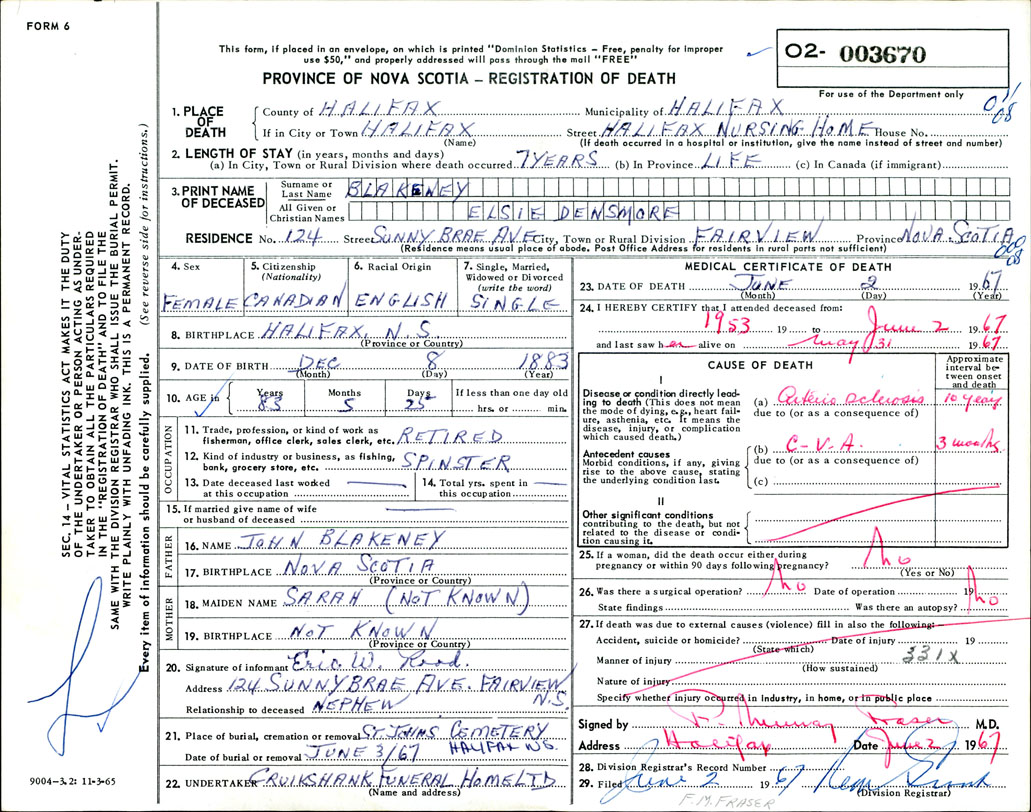 FORM 6
This form, if placed in an envelope, on which is printed "Dominion Statistics – Free, penalty for improper
use $50," and properly addressed will pass through the mail "FREE"
PROVINCE OF NOVA SCOTIA – REGISTRATION OF DEATH
02- 003670
For use of the Department only
SEC. 14 – VITAL STATISTICS ACT MAKES IT THE DUTY
OF THE UNDERTAKER OR PERSON ACTING AS UNDER-
TAKER TO OBTAIN ALL THE PARTICULARS REQUIRED
IN THE "REGISTRATION OF DEATH" AND TO FILE THE
SAME WITH THE DIVISION REGISTRAR WHO SHALL ISSUE THE BURIAL PERMIT.
WRITE PLAINLY WITH UNFADING INK. THIS IS A PERMANENT RECORD.
Every item of information should be carefully supplied. (See reverse side for instructions.)
1. PLACE OF DEATH
County of HALIFAX Municipality of HALIFAX
If in City or Town HALIFAX Street HALIFAX NURSING HOME House No.
(Name) (If death occurred in a hospital or institution, give the name instead of street and number)
2. LENGTH OF STAY (in years, months and days)
(a) In City, Town or Rural Division where death occurred 7 YEARS (b) In Province LIFE (c) In Canada (if immigrant)
3. PRINT NAME OF DECEASED
Surname or Last Name BLAKENEY
All Given or Christian Names ELSIE DENSMORE
RESIDENCE No. 124 Street SUNNY BRAE AVE City, Town or Rural Division FAIRVIEW Province NOVA SCOTIA
(Residence means usual place of abode. Post Office Address for residents in rural parts not sufficient)
4. Sex
FEMALE
5. Citizenship (Nationality)
CANADIAN
6. Racial Origin
ENGLISH
7. Single, Married, Widowed or Divorced (write the word)
SINGLE
8. BIRTHPLACE HALIFAX, N.S.
(Province or Country)
9. DATE OF BIRTH DEC 8 1883
(Month) (Day) (Year)
10. AGE in Years Months Days If less than one day old
83 5 25 hrs. or min.
OCCUPATION
11. Trade, profession, or kind of work as
fisherman, office clerk, sales clerk, etc. RETIRED
12. Kind of industry or business, as fishing,
bank, grocery store, etc. SPINSTER
13. Date deceased last worked
at this occupation
14. Total yrs. spent in
this occupation
15. If married give name of wife
or husband of deceased
FATHER
16. NAME JOHN BLAKENEY
17. BIRTHPLACE NOVA SCOTIA
(Province or Country)
MOTHER
18. MAIDEN NAME SARAH (NOT KNOWN)
19. BIRTHPLACE NOT KNOWN
(Province or Country)
20. Signature of informant Eric W.
Address 124 SUNNYBRAE AVE. FAIRVIEW N.S.
Relationship to deceased NEPHEW
21. Place of burial, cremation or removal ST JOHNS CEMETERY
Date of burial or removal JUNE 3/67 HALIFAX NS.
22. UNDERTAKER CRUIKSHANK FUNERAL HOME LTD
(Name and address)
9004-3.2: 11-3-65
MEDICAL CERTIFICATE OF DEATH
23. DATE OF DEATH JUNE 2 1967
(Month) (Day) (Year)
24. I HEREBY CERTIFY that I attended deceased from:
1953 19 to June 2 1967
and last saw her alive on May 31 1967
CAUSE OF DEATH
Approximate interval between onset and death
I
Disease or condition directly lead-
ing to death (This does not mean
the mode of dying, e.g., heart fail-
ure, asthenia, etc. It means the
disease, injury, or complication
which caused death.)
(a) Arterio sclerosis 10 years
due to (or as a consequence of)
Antecedent causes
Morbid conditions, if any, giving
rise to the above cause, stating
the underlying condition last.
(b) C-V.A. 3 months
due to (or as a consequence of)
(c)
II
Other significant conditions
contributing to the death, but not
related to the disease or condi-
tion causing it.
25. If a woman, did the death occur either during
pregnancy or within 90 days following pregnancy? no
(Yes or No)
26. Was there a surgical operation? no Date of operation 19
State findings Was there an autopsy? no
27. If death was due to external causes (violence) fill in also the following:–
Accident, suicide or homicide? Date of injury 19
(State which)
Manner of injury 331X
(How sustained)
Nature of injury
Specify whether injury occurred in industry, in home, or in public place
Signed by Fraser M.D.
Address Halifax Date June 2 1967
28. Division Registrar's Record Number
29. Filed June 2 1967
(Division Registrar)
F.M. FRASER